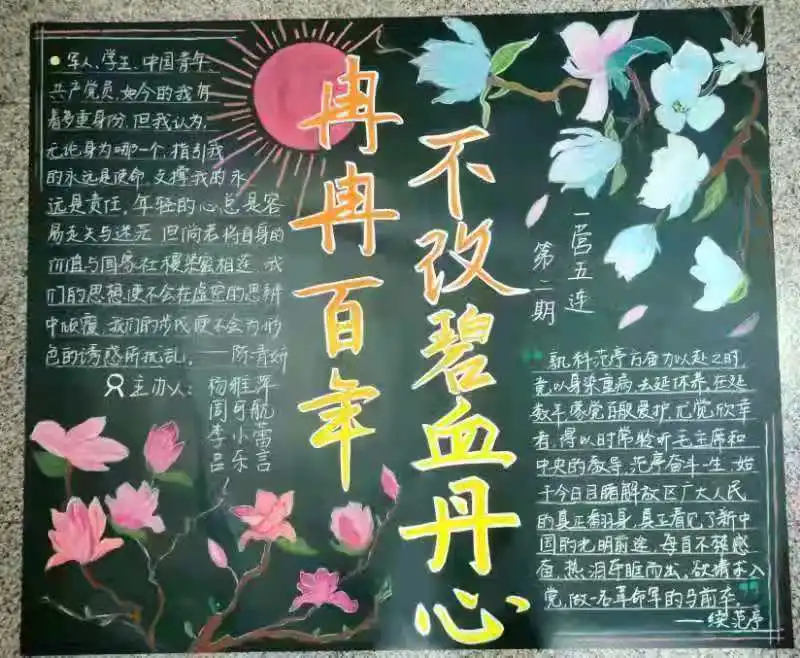 军人、学生、中国青年、
共产党员,如今的我有
着多重身份,但我认为,
无论身为哪一个,指引我
的永远是使命,支撑我的永
远是责任。年轻的心总是容
易走失与迷茫,但倘若将自身的
价值与国家社稷紧密相连,我
们的思想便不会在虚空的思辨
中倾覆,我们的步伐便不会为形
色的诱惑所扰乱。——陈青娇
主办人:杨雅萍
周可航
李小蕾
吕乐言
冉冉百年
不改碧血丹心
一营五连
第二期
范亭方全力以赴之时,
竟以身染重病,去延休养,在延
数年蒙党百般爱护,尤觉欣幸
者,得以时常聆听毛主席和
中央的教导,范亭奋斗一生,始
于今日目睹解放区广大人民
的真正翻身,真正看见了新中
国的光明前途,每自不禁感
奋,热泪夺眶而出,欲请求入
党,做一名革命军的马前卒。
——续范亭